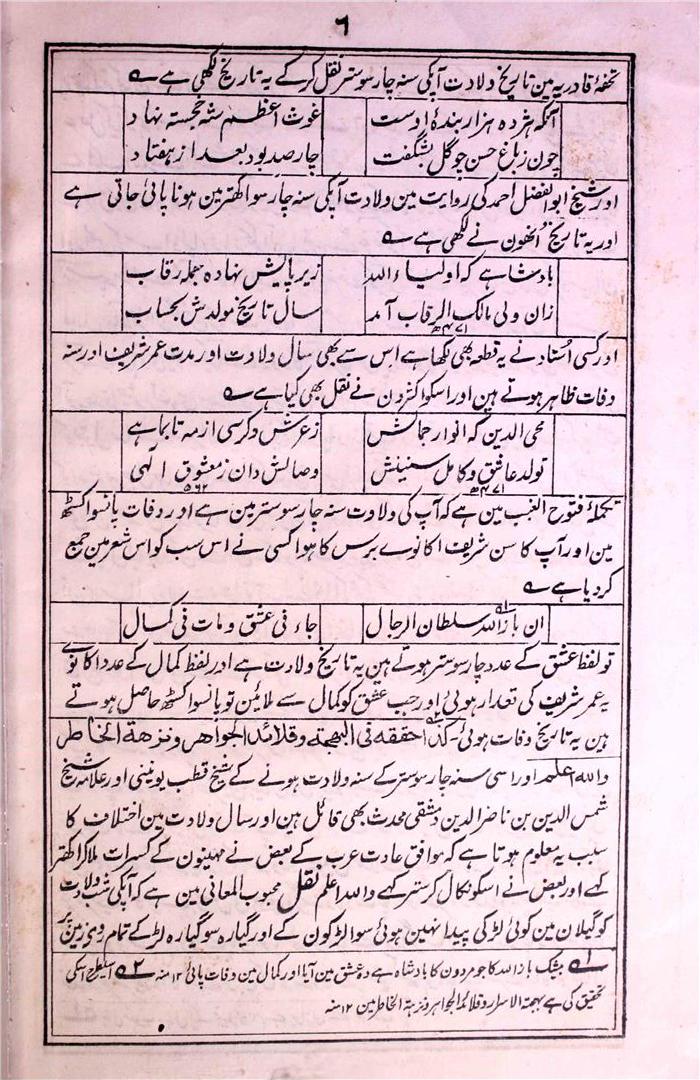 ٦
تحفۂ قادریہ مین تاریخ ولادت آپکی سنہ چار سو ستر نقل کرکے یہ تاریخ لکھی ہے ؎
آنکہ ہژدہ ہزار بندۂ اوست غوث اعظم شہ خجستہ نہاد
چون زباغ حسن چو گل بشگفت چار صد بود بعد از ہفتاد
اور شیخ ابو الفضل احمد کی روایت مین ولادت آپکی سنہ چار سو اکہتر مین ہونا پائی جاتی ہے
اور یہ تاریخ اُنھون نے لکھی ہے ؎
بادشاہے کہ اولیاء اللہ زیر پایش نہادہ جملہ رقاب
زان ولی مالک الرقاب آمد سال تاریخ مولدش بحساب
۴۷۱ھ
اور کسی اُستاد نے یہ قطعہ بھی لکھا ہے اس سے بھی سال ولادت اور مدت عمر شریف اور سنہ
وفات ظاہر ہوتے ہین اور اسکو اکثرون نے نقل بھی کیا ہے ؎
محی الدین کہ انوار جمالش زعرش و کرسی از مہ تا بماہے
تولد عاشق و کامل سنینش وصالش دان ز معشوق الٰہی
۴۷۱ھ ۵۶۲
تکملۂ فتوح الغیب مین ہے کہ آپ کی ولادت سنہ چار سو ستر مین ہے اور وفات پانسو اکسٹھ
مین اور آپ کا سن شریف اکانوے برس کا ہوا کسی نے اس سب کو اس شعر مین جمع
کر دیا ہے ؎
ان باز اللہ سلطان الرجال ۱؎ جاء فی عشق و مات فی کمال
تو لفظ عشق کے عدد چار سو ستر ہوتے ہین یہ تاریخ ولادت ہے اور لفظ کمال کے عدد اکانوے
یہ عمر شریف کی تعداد ہوئی اور جب عشق کو کمال سے ملائین تو پانسو اکسٹھ حاصل ہوتے
ہین یہ تاریخ وفات ہوئی۔ کذا ۲؎ حققہ فی البہجۃ وقلائد الجواھر ونزھۃ الخاطر
واللہ اعلم اور اسی سنہ چار سو ستر کے سنہ ولادت ہونے کے شیخ قطب یونینی اور علامہ شیخ
شمس الدین بن ناصر الدین دمشقی محدث بھی قائل ہین اور سال ولادت مین اختلاف کا
سبب یہ معلوم ہوتا ہے کہ موافق عادت عرب کے بعض نے مہینون کے کسرات ملاکر اکہتر
کہے اور بعض نے اسکو نکال کر ستر کہے واللہ اعلم نقل محبوب المعانی مین ہے کہ آپکی شب ولادت
کو گیلان مین کوئی لڑکی پیدا نہین ہوئی سوا لڑکون کے اور گیارہ سو گیارہ لڑکے تمام روی زمین پر
۱؎ بیشک باز اللہ کا جو مردون کا بادشاہ ہے وہ عشق مین آیا اور کمال مین وفات پائی ۱۲ منہ ۲؎ اسیطرح اسکی
تحقیق کی ہے بہجۃ الاسرار و قلائد الجواہر و نزہۃ الخاطر مین ۱۲ منہ